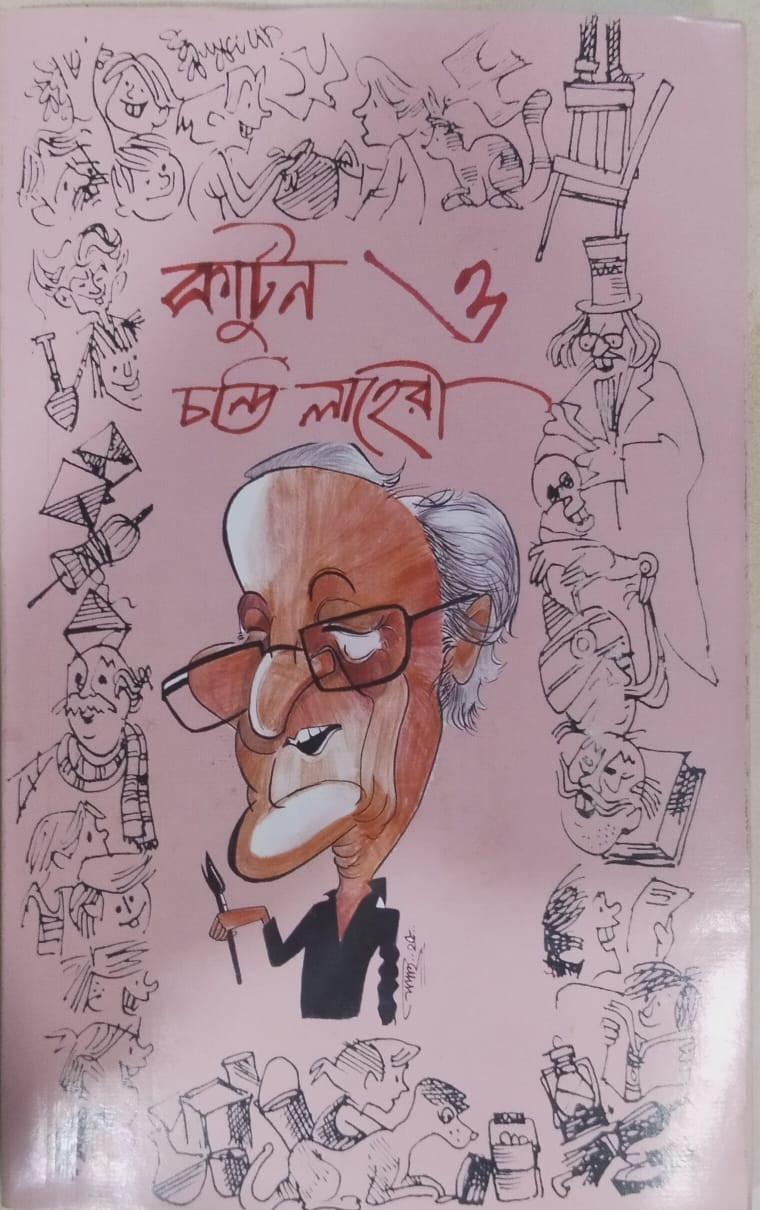 কার্টুন ও
চন্ডি লাহেরী